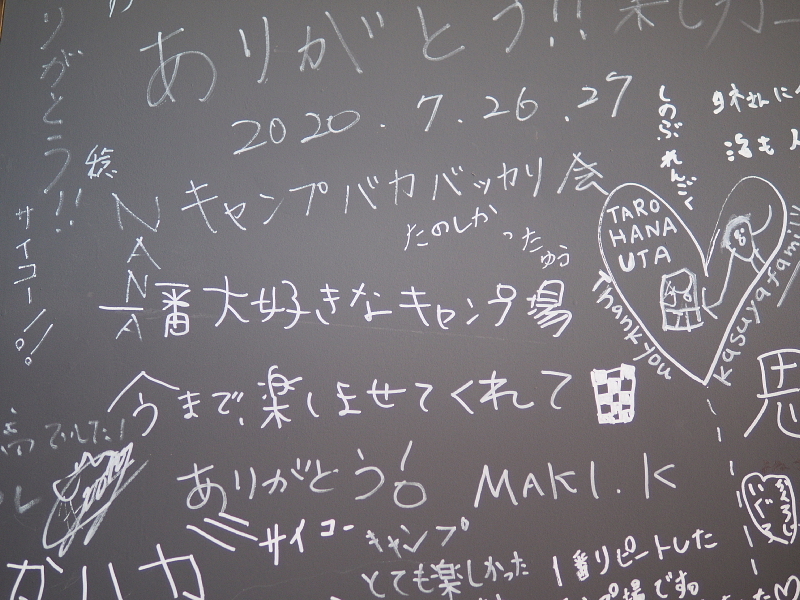 ありがとう!!
ありがとう!!
2020.7.26.27
しのぶ れんごく
キャンプバカバッカリ会
サイコー!!
NANA
たのしかったゆう
TARO
HANA
UTA
Thank you
Kasuya family
一番大好きなキャンプ場
今まで、楽しませてくれて
ありがとう!
MAKI.K
サイコー
キャンプ
とても楽しかった
1番リピートした
キャンプ場です。